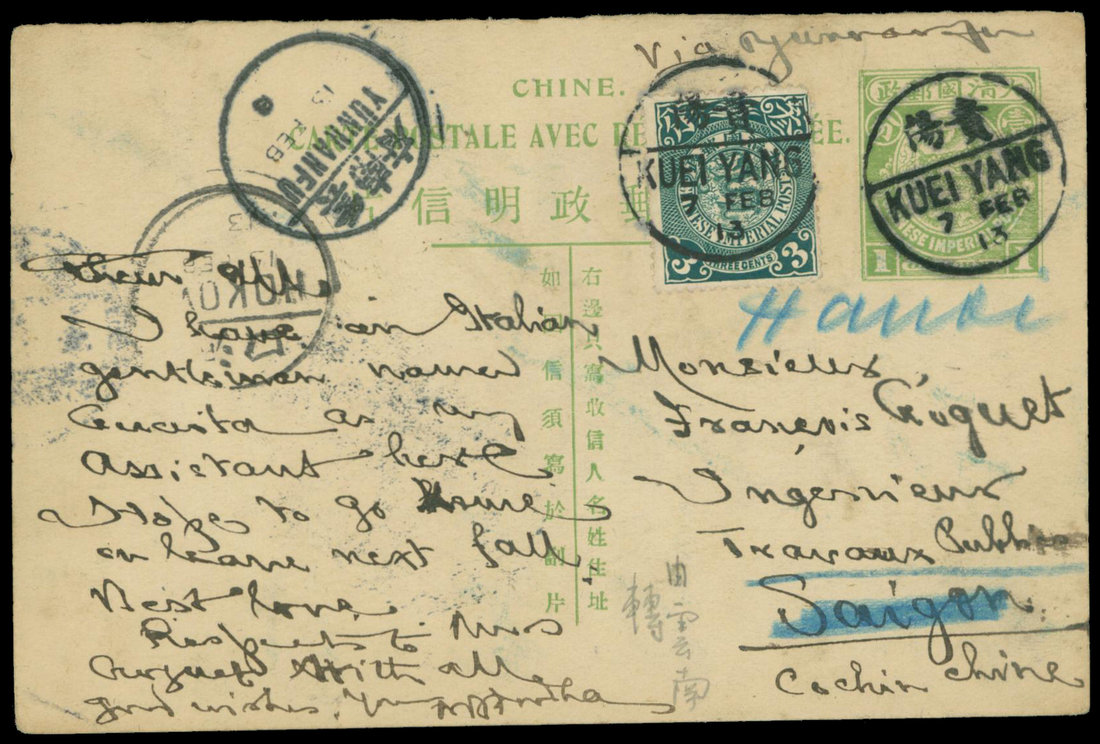 Via Yunnanfu
CHINE.
CARTE POSTALE AVEC RÉPONSE PAYÉE.
郵政明信片
大清國郵政
CHINESE IMPERIAL POST
3 THREE CENTS 3
1 1
貴陽
KUEI YANG
7 FEB
13
貴陽
KUEI YANG
7 FEB
13
YUNNANFU
13 FEB
雲南府
HOKOW
13
右邊只寫收信人名姓住址
如信須寫於副片
Hanoi
Monsieur
François Goguet
Ingenieur
Travaux Publics
Saigon.
Cochin Chine
由雲南
轉
I have an Italian
gentleman named
as my
Assistant here
I hope to go home
on leave next fall.
Best love.
Respects to Mrs
Goguet With all
good wishes. Yrs